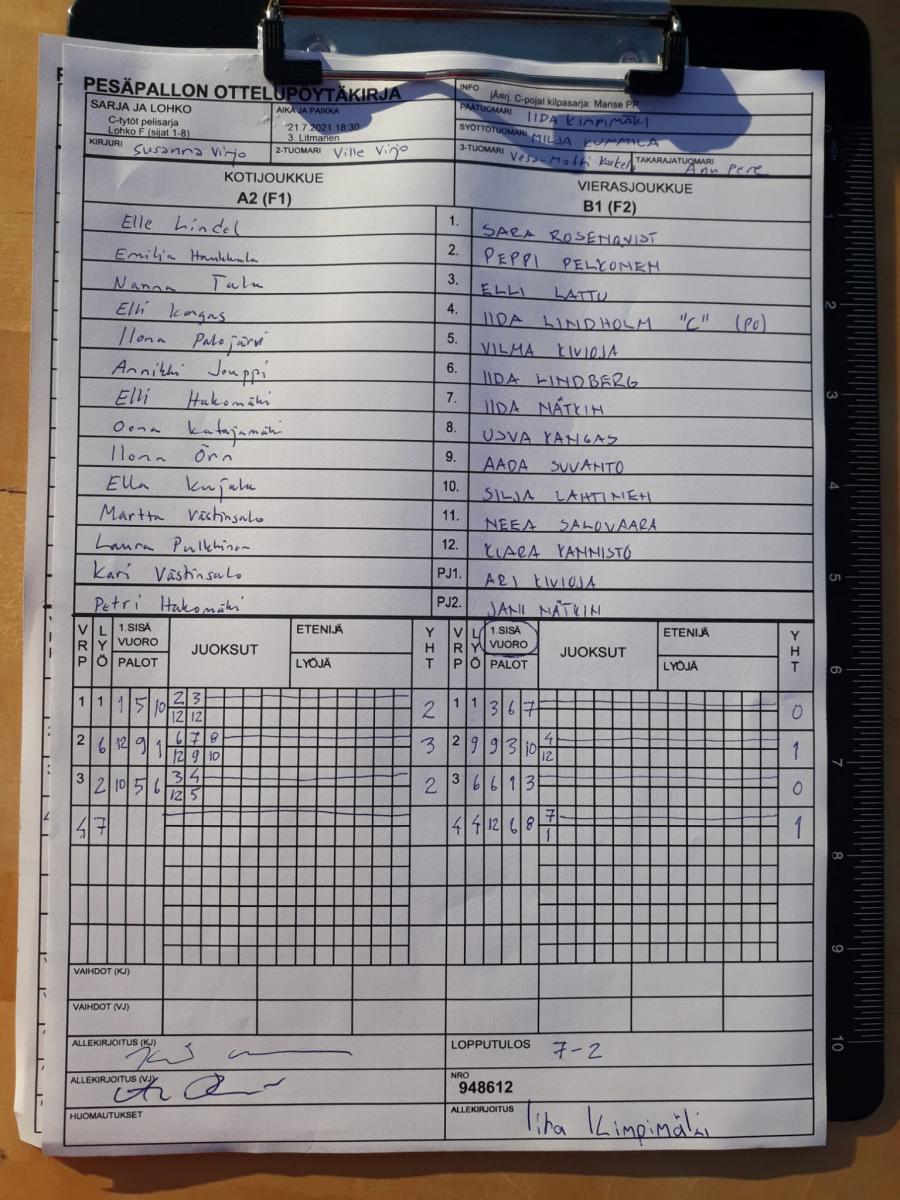 PESÄPALLON OTTELUPÖYTÄKIRJA
INFO jÄrj. C-pojat kilpasarja: Manse PP
SARJA JA LOHKO
C-tytöt pelisarja
Lohko F (sijat 1-8)
AIKA JA PAIKKA
21.7.2021 18:30
3. Litmanen
PÄÄTUOMARI IIDA KIMPIMÄKI
SYÖTTÖTUOMARI MILJA KUMMILA
KIRJURI Susanna Virjo
2-TUOMARI Ville Virjo
3-TUOMARI Vesa-Matti
TAKARAJATUOMARI Anu Pere
KOTIJOUKKUE
A2 (F1)
VIERASJOUKKUE
B1 (F2)
Elle Lindel 1. SARA ROSENQVIST
Emilia Haukkala 2. PEPPI PELKONEN
Nanna Talu 3. ELLI LATTU
Elli Kangas 4. IIDA LINDHOLM "C" (PO)
Ilona Palojärvi 5. VILMA KIVIOJA
Annikki Jouppi 6. IIDA LINDBERG
Elli Hakomäki 7. IIDA NÄTKIN
Oona Katajamäki 8. USVA KANGAS
Ilona Örn 9. AADA SUVANTO
Ella Kujala 10. SILJA LAHTINEN
Martta Västinsalo 11. NEEA SALOVAARA
Laura Pulkkinen 12. KLARA KANNISTO
Kari Västinsalo PJ1. ARI KIVIOJA
Petri Hakomäki PJ2. JANI NÄTKIN
VRP LYÖ 1.SISÄ VUORO PALOT JUOKSUT ETENIJÄ LYÖJÄ YHT VRP LYÖ 1.SISÄ VUORO PALOT JUOKSUT ETENIJÄ LYÖJÄ YHT
1 1 1 5 10 2 3 2 1 1 3 6 7 0
12 12
2 6 12 9 1 6 7 8 3 2 9 9 3 10 4 1
12 9 10 12
3 2 10 5 6 3 4 2 3 6 6 1 3 0
12 5
4 7 4 4 12 6 8 7 1
1
VAIHDOT (KJ)
VAIHDOT (VJ)
ALLEKIRJOITUS (KJ)
LOPPUTULOS 7-2
ALLEKIRJOITUS (VJ)
NRO
948612
HUOMAUTUKSET
ALLEKIRJOITUS Iida Kimpimäki